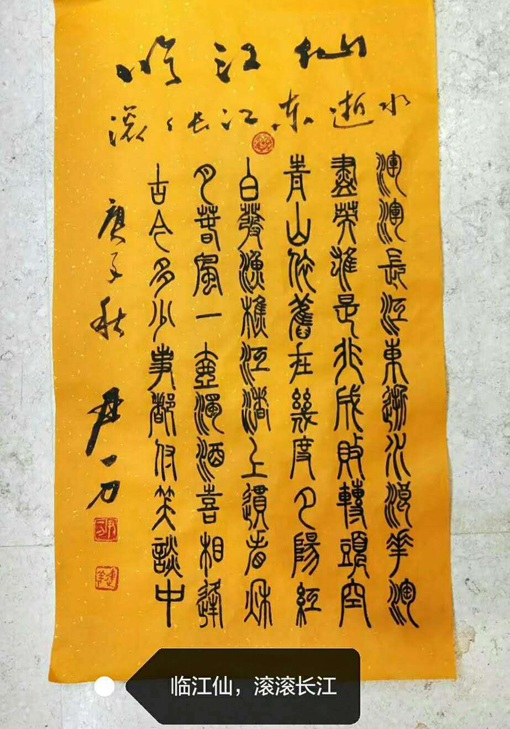 临江仙
滚〻长江东逝水
滾滾長江東逝水浪華淘
盡英雄是非成敗轉頭空
青山依舊在幾度夕陽紅
白發漁樵江渚上慣看秋
月春風一壺濁酒喜相逢
古今多少事都付笑談中
庚子秋 尹一刀
临江仙，滚滚长江